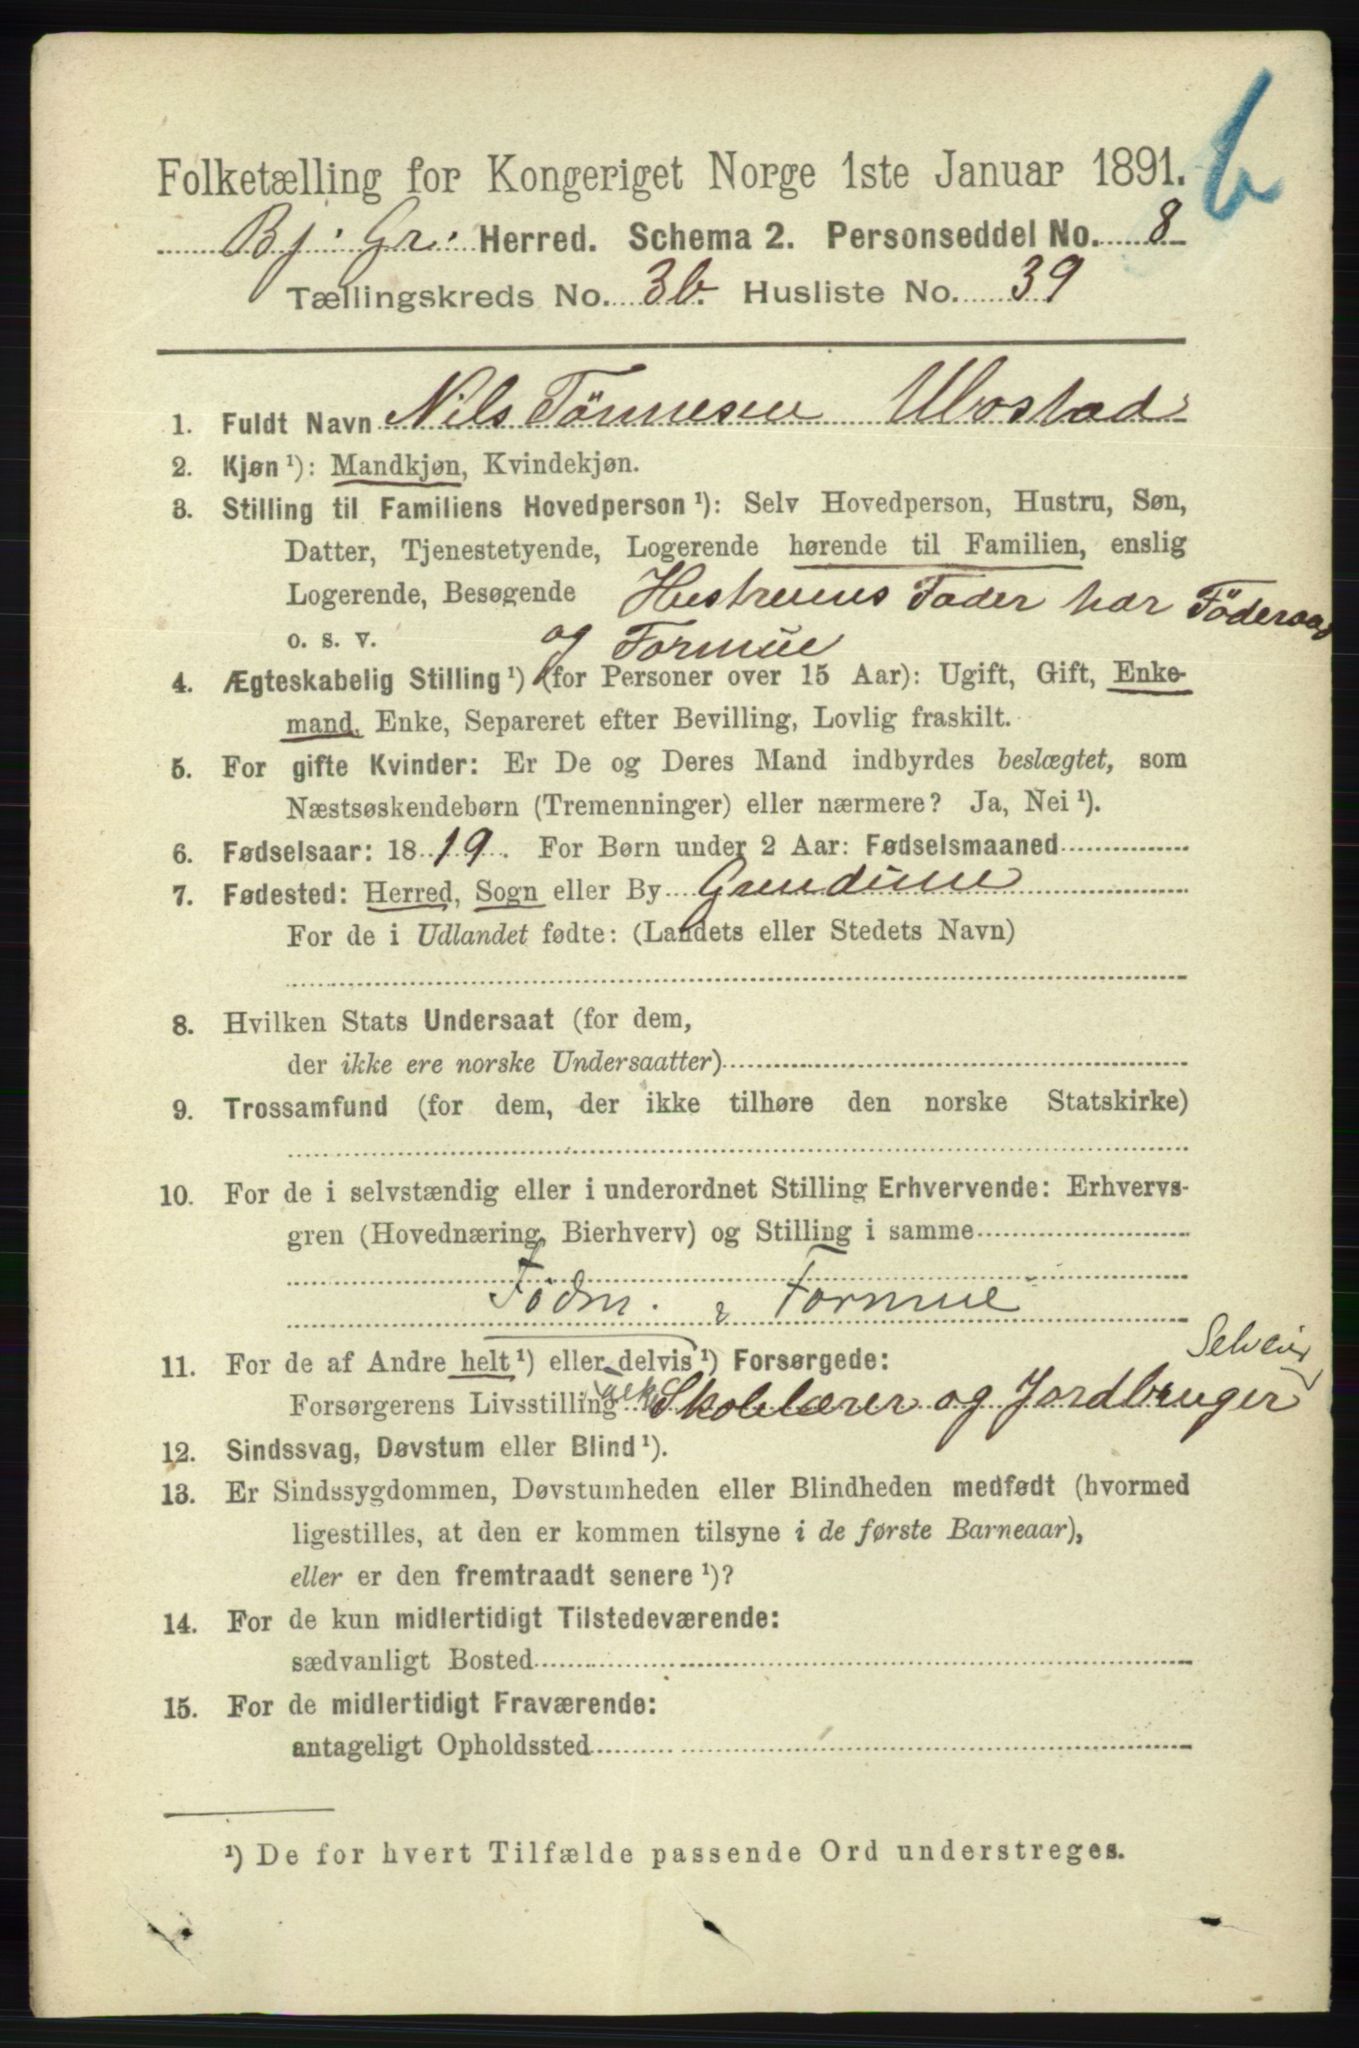 b
Folketælling for Kongeriget Norge 1ste Januar 1891.
Bj. Gr. Herred. Schema 2. Personseddel No. 8
Tællingskreds No. 3b. Husliste No. 39
1. Fuldt Navn Nils Tönnesen Ubostad
2. Kjøn¹): Mandkjøn, Kvindekjøn.
3. Stilling til Familiens Hovedperson¹): Selv Hovedperson, Hustru, Søn,
Datter, Tjenestetyende, Logerende hørende til Familien, enslig
Logerende, Besøgende Hustruens Fader har Föderaad
o. s. v. og Formue
4. Ægteskabelig Stilling¹) (for Personer over 15 Aar): Ugift, Gift, Enke-
mand, Enke, Separeret efter Bevilling, Lovlig fraskilt.
5. For gifte Kvinder: Er De og Deres Mand indbyrdes beslægtet, som
Næstsøskendebørn (Tremenninger) eller nærmere? Ja, Nei¹).
6. Fødselsaar: 1819. For Børn under 2 Aar: Fødselsmaaned
7. Fødested: Herred, Sogn eller By Grindum
For de i Udlandet fødte: (Landets eller Stedets Navn)
8. Hvilken Stats Undersaat (for dem,
der ikke ere norske Undersaatter)
9. Trossamfund (for dem, der ikke tilhøre den norske Statskirke)
10. For de i selvstændig eller i underordnet Stilling Erhvervende: Erhvervs-
gren (Hovednæring, Bierhverv) og Stilling i samme
Födm. & Formue
11. For de af Andre helt¹) eller delvis¹) Forsørgede: Selveier
Forsørgerens Livsstilling Skolelærer og Jordbruger
12. Sindssvag, Døvstum eller Blind¹).
13. Er Sindssygdommen, Døvstumheden eller Blindheden medfødt (hvormed
ligestilles, at den er kommen tilsyne i de første Barneaar),
eller er den fremtraadt senere¹)?
14. For de kun midlertidigt Tilstedeværende:
sædvanligt Bosted
15. For de midlertidigt Fraværende:
antageligt Opholdssted
¹) De for hvert Tilfælde passende Ord understreges.